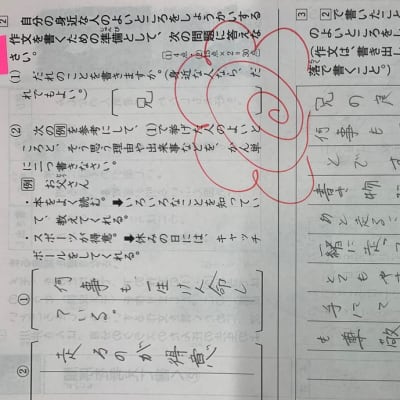 2 自分の身近な人のよいところをしょうかいする
作文を書くための準備として、次の問題に答えな
さい。
(1) だれのことを書きますか。(身近な人なら、だ
れでもよい。)
兄
(2) 次の例を参考にして、(1)で挙げた人のよいと
ころと、そう思う理由や出来事などを、かん単
に二つ書きなさい。
例 お父さん
・本をよく読む。➡いろいろなことを知ってい
て、教えてくれる。
・スポーツが得意。➡休みの日には、キャッチ
ボールをしてくれる。
① 何事も一生けん命し
ている。
② 走るのが得意
3 2で書いたこと
(作文は、書き出し
落で書くこと。)
兄の良
何事も
とです
一緒に走っ
とてもやさ
も尊敬